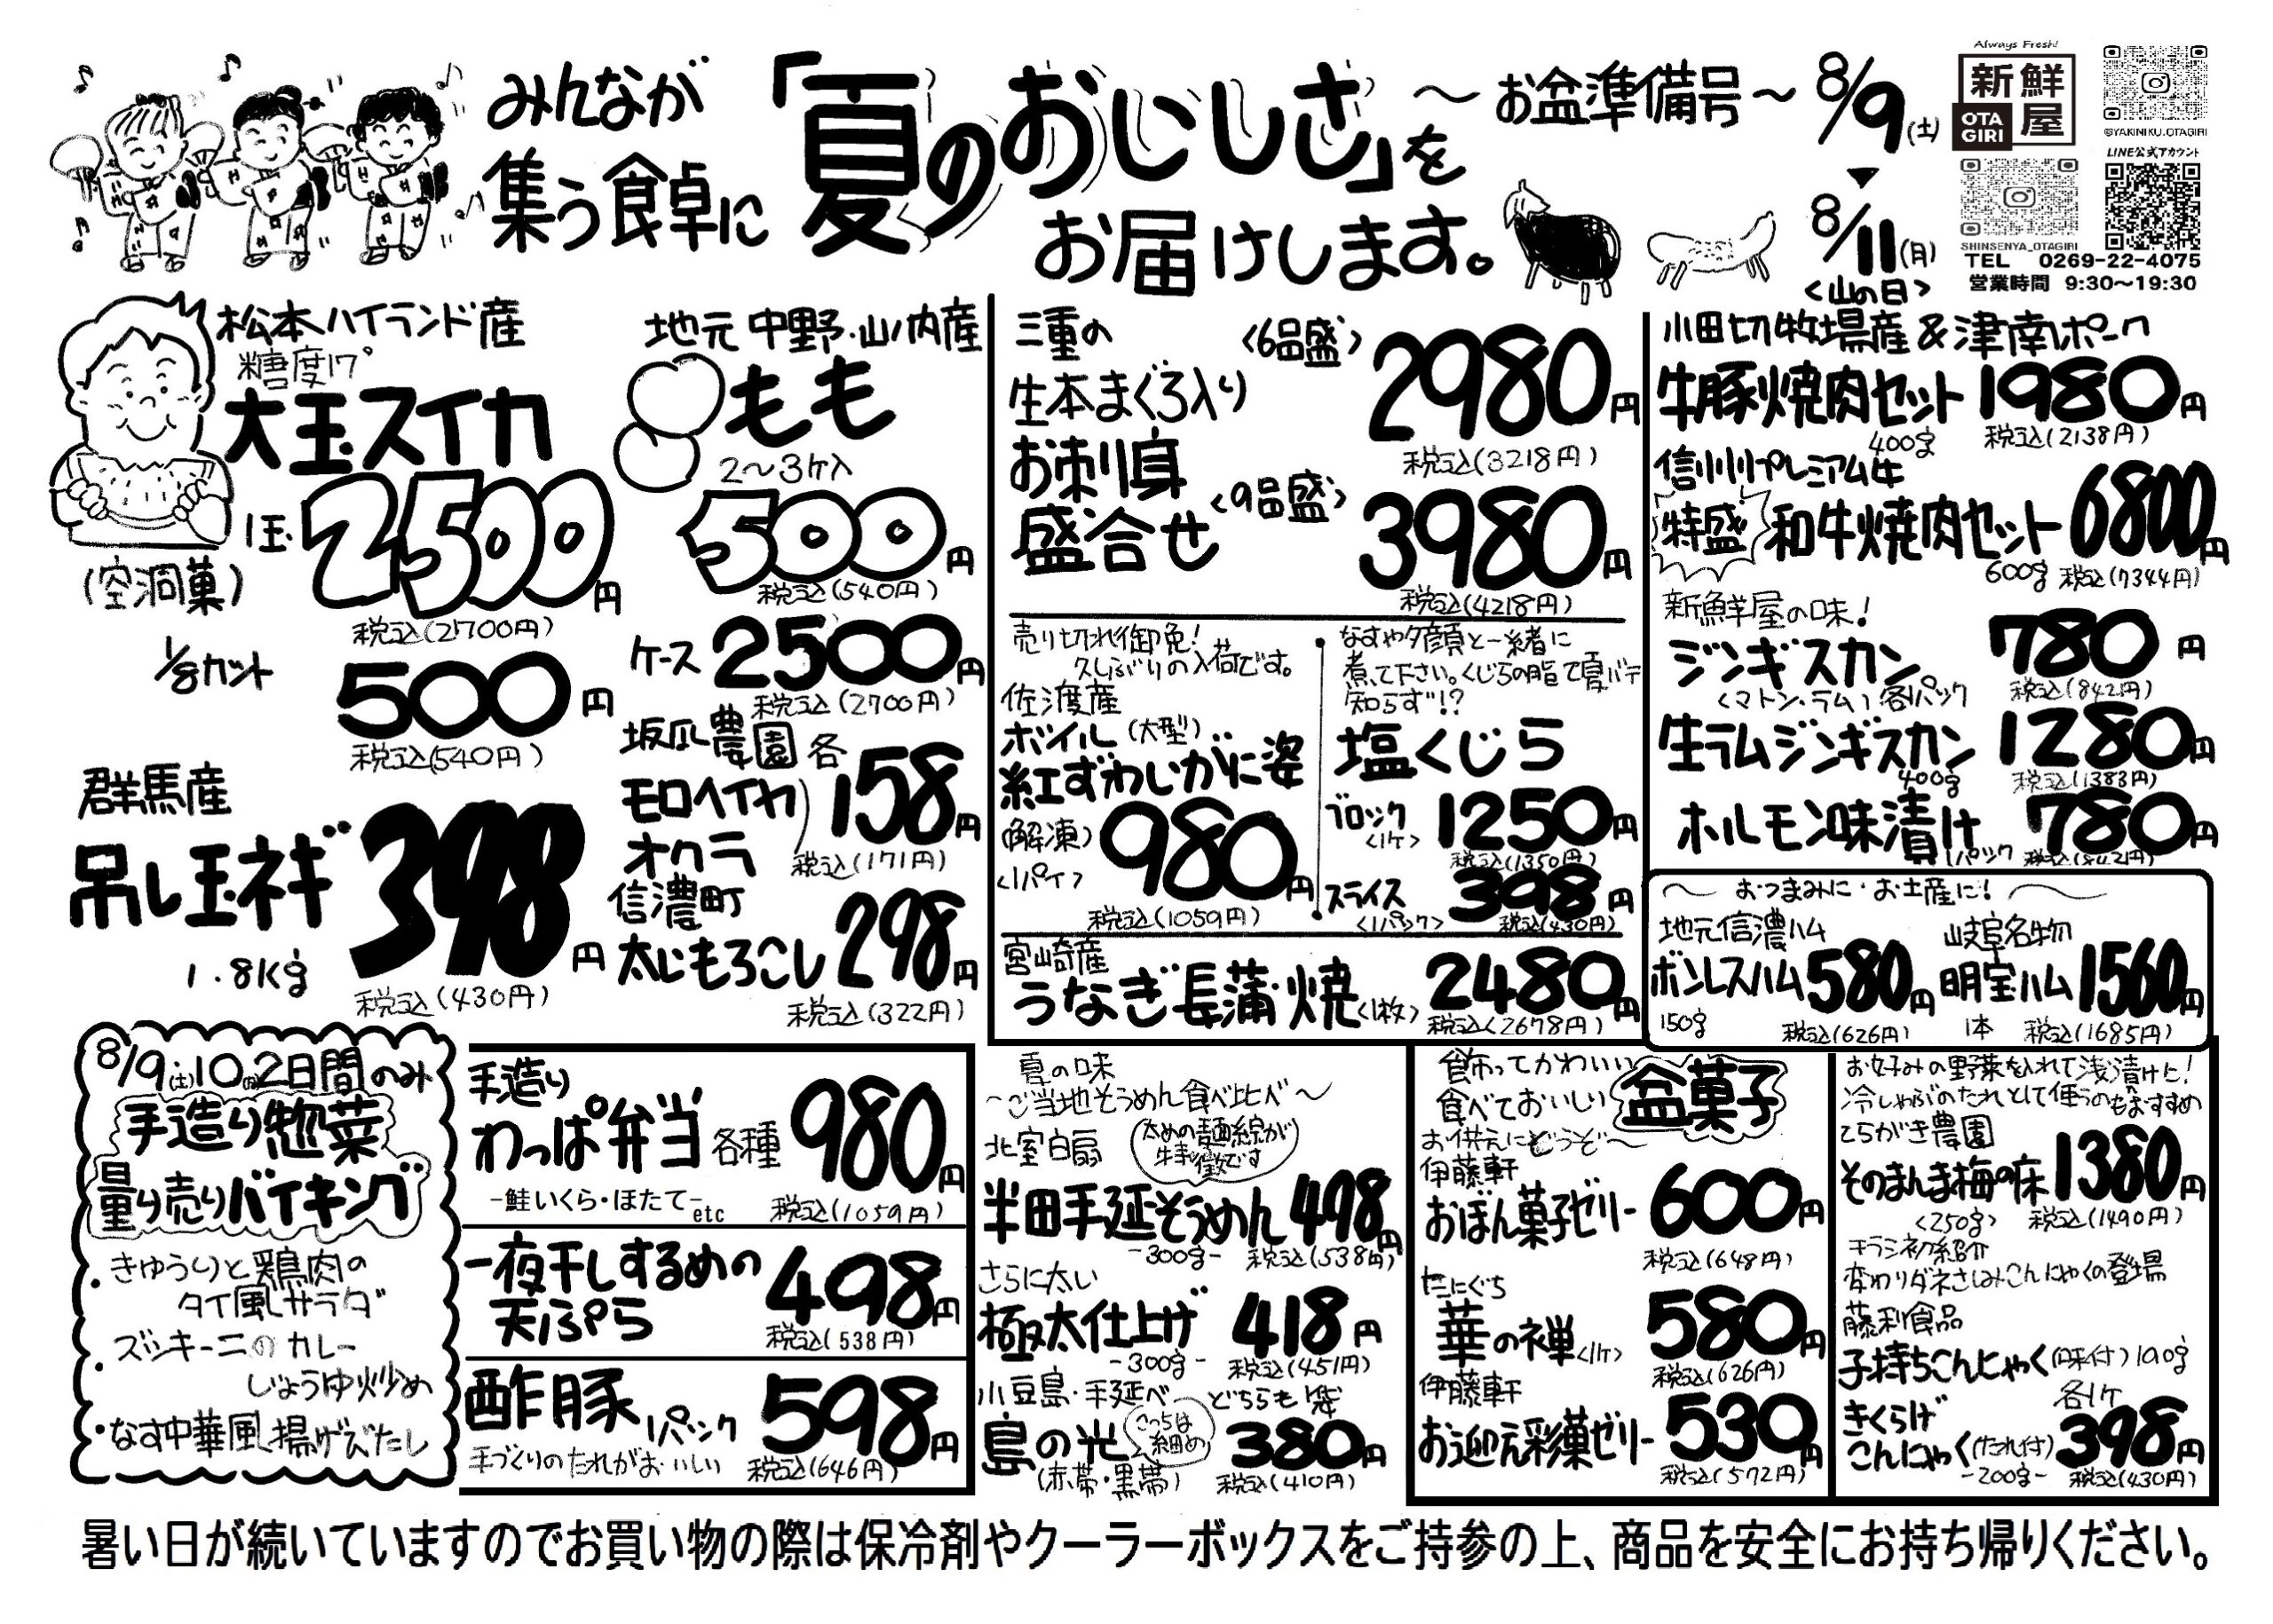 みんなが
集う食卓に
「夏のおいしさ」を
お届けします。
～お盆準備号～
8/9(土)
8/11(月)
<山の日>
Always Fresh!
新鮮屋
OTAGIRI
@YAKINIKU.OTAGIRI
LINE公式アカウント
SHINSENYA_OTAGIRI
TEL 0269-22-4075
営業時間 9:30～19:30
松本ハイランド産
糖度17°
大玉スイカ
1玉 2500円
(空洞菓)
税込(2700円)
1/8カット
500円
税込(540円)
群馬産
吊し玉ネギ 398円
1.8Kg
税込(430円)
地元 中野・山ノ内産
もも
2～3ケ入
500円
税込(540円)
ケース 2500円
税込(2700円)
坂爪農園 各
モロヘイヤ
オクラ
158円
税込(171円)
信濃町
太いもろこし 298円
税込(322円)
三重の
生本まぐろ入り
お刺身
盛合せ
<6品盛> 2980円
税込(3218円)
<9品盛> 3980円
税込(4218円)
売り切れ御免!
久しぶりの入荷です。
佐渡産
ボイル(大型)
紅ずわいがに姿
(解凍)
<1パイ>
980円
税込(1059円)
なすや夕顔と一緒に
煮て下さい。くじらの脂で夏バテ
知らず!?
塩くじら
ブロック
<1ケ>
1250円
税込(1350円)
スライス
<1パック>
398円
税込(430円)
宮崎産
うなぎ長蒲焼<1枚> 2480円
税込(2678円)
小田切牧場産&津南ポーク
牛豚焼肉セット 1980円
400g 税込(2138円)
信州プレミアム牛
特盛 和牛焼肉セット 6800円
600g 税込(7344円)
新鮮屋の味!
ジンギスカン 780円
<マトン・ラム>各1パック 税込(842円)
生ラムジンギスカン 1280円
400g 税込(1383円)
ホルモン味漬け 780円
1パック 税込(842円)
～おつまみに・お土産に!～
地元信濃ハム
ボンレスハム 580円
150g 税込(626円)
岐阜名物
明宝ハム 1560円
1本 税込(1685円)
8/9(土)10(日)2日間のみ
手造り惣菜
量り売りバイキング
・きゅうりと鶏肉の
タイ風サラダ
・ズッキーニのカレー
じょうゆ炒め
・なす中華風揚げびたし
手造り
わっぱ弁当 各種 980円
-鮭いくら・ほたて-etc 税込(1059円)
一夜干しするめの
天ぷら
498円
税込(538円)
酢豚 1パック 598円
手づくりのたれがおいしい 税込(646円)
夏の味
～ご当地そうめん食べ比べ～
北室白扇
太めの麺線が
特徴です
半田手延そうめん 498円
-300g- 税込(538円)
さらに太い
極太仕上げ 418円
-300g- 税込(451円)
小豆島・手延べ
どちらも1袋
島の光
こっちは
細め
380円
(赤帯・黒帯) 税込(410円)
飾ってかわいい
食べておいしい
盆菓子
お供えにどうぞ～
伊藤軒
おぼん菓子ゼリー 600円
税込(648円)
たにぐち
華の禅<1ケ> 580円
税込(626円)
伊藤軒
お迎え彩菓ゼリー 530円
税込(572円)
お好みの野菜を入れて浅漬けに!
冷しゃぶのたれとして使うのもおすすめ
こちがき農園
そのまんま梅の床 1380円
<250g> 税込(1490円)
チラシ初紹介
変わりダネさしみこんにゃくの登場
藤利食品
子持ちこんにゃく(味付)190g
きくらげ
こんにゃく(たれ付)
-200g-
各1ケ
398円
税込(430円)
暑い日が続いていますのでお買い物の際は保冷剤やクーラーボックスをご持参の上、商品を安全にお持ち帰りください。